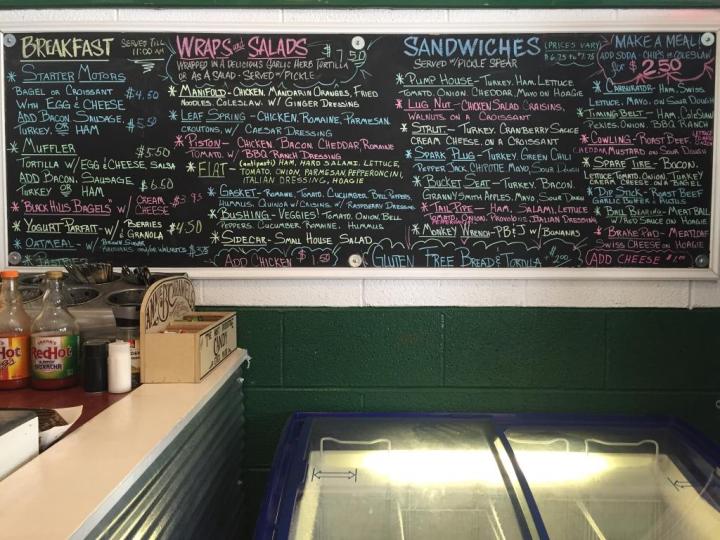 BREAKFAST
SERVED TILL
11:00 AM
* STARTER MOTORS
BAGEL OR CROISSANT
WITH EGG & CHEESE $4.50
ADD BACON, SAUSAGE,
TURKEY, OR HAM
* MUFFLER $5.50
TORTILLA W/ EGG & CHEESE, SALSA
ADD BACON, SAUSAGE
TURKEY OR HAM $6.50
* "BLACK HILLS BAGELS" W/ CREAM CHEESE
* YOGURT PARFAIT - W/ BERRIES & GRANOLA $4.50
* OATMEAL - W/ BROWN SUGAR
WRAPS and SALADS $7.50
WRAPPED IN A DELICIOUS GARLIC HERB TORTILLA
OR AS A SALAD - SERVED W/ PICKLE
* MANIFOLD - CHICKEN, MANDARIN ORANGES, FRIED
NOODLES, COLESLAW, W/ GINGER DRESSING
* LEAF SPRING - CHICKEN, ROMAINE, PARMESAN,
CROUTONS, W/ CAESAR DRESSING
* PISTON - CHICKEN, BACON, CHEDDAR, ROMAINE
TOMATO, W/ BBQ RANCH DRESSING
* FLAT - HAM, HARD SALAMI, LETTUCE,
TOMATO, ONION, PARMESAN, PEPPERONCINI,
ITALIAN DRESSING, HOAGIE
* GASKET - ROMAINE, TOMATO, CUCUMBER, BELL PEPPERS,
HUMMUS, QUINOA W/ CRAISINS, W/ RASPBERRY DRESSING
* BUSHING - VEGGIES! TOMATO, ONION, BELL
PEPPERS, CUCUMBER, ROMAINE, HUMMUS
* SIDECAR - SMALL HOUSE SALAD
ADD CHICKEN $1.50
SANDWICHES
(PRICES VARY)
SERVED W/ PICKLE SPEAR
* PUMP HOUSE - TURKEY, HAM, LETTUCE,
TOMATO, ONION, CHEDDAR, MAYO ON HOAGIE
* LUG NUT - CHICKEN SALAD CRAISINS,
WALNUTS ON A CROISSANT
* STRUT - TURKEY, CRANBERRY SAUCE
CREAM CHEESE, ON A CROISSANT
* SPARK PLUG - TURKEY, GREEN CHILI
PEPPER JACK, CHIPOTLE MAYO, SOUR DOUGH
* BUCKET SEAT - TURKEY, BACON,
GRANNY SMITH APPLES, MAYO, SOUR DOUGH
* TAIL PIPE - HAM, SALAMI, LETTUCE
TOMATO, ONION, PROVOLONE, ITALIAN DRESSING
* MONKEY WRENCH - PB & J W/ BANANAS
GLUTEN FREE BREAD & TORTILLA + $2.00
MAKE A MEAL!
ADD SODA - CHIPS OR COLESLAW
for $2.50
* CARBURATOR - HAM, SWISS,
LETTUCE, MAYO, ON SOUR DOUGH
* TIMING BELT - HAM, COLESLAW
PICKLES, ONION, BBQ, RANCH
* COWLING - ROAST BEEF
CHEDDAR, MUSTARD ON SOUR DOUGH
* SPARE TIRE - BACON,
LETTUCE, TOMATO, ONION, TURKEY
CREAM CHEESE ON A BAGEL
* DIP STICK - ROAST BEEF
GARLIC BUTTER & AU JUS
* BALL BEARING - MEATBALL
W/ RED SAUCE ON HOAGIE
* BRAKE PAD - MEATLOAF
SWISS CHEESE ON HOAGIE
ADD CHEESE $1.00
RedHot